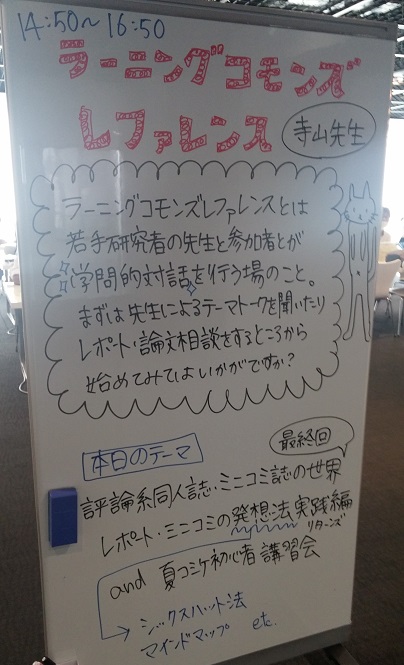 14:50〜16:50
ラーニングコモンズ
レファレンス
寺山先生
ラーニングコモンズレファレンスとは
若手研究者の先生と参加者とが
学問的対話を行う場のこと。
まずは先生によるテーマトークを聞いたり
レポート・論文相談をするところから
始めてみてはいかがですか?
本日のテーマ
最終回
評論系同人誌・ミニコミ誌の世界
レポート・ミニコミの発想法実践編
リターンズ
and 夏コミケ初心者講習会
シックスハット法
マインドマップ etc.